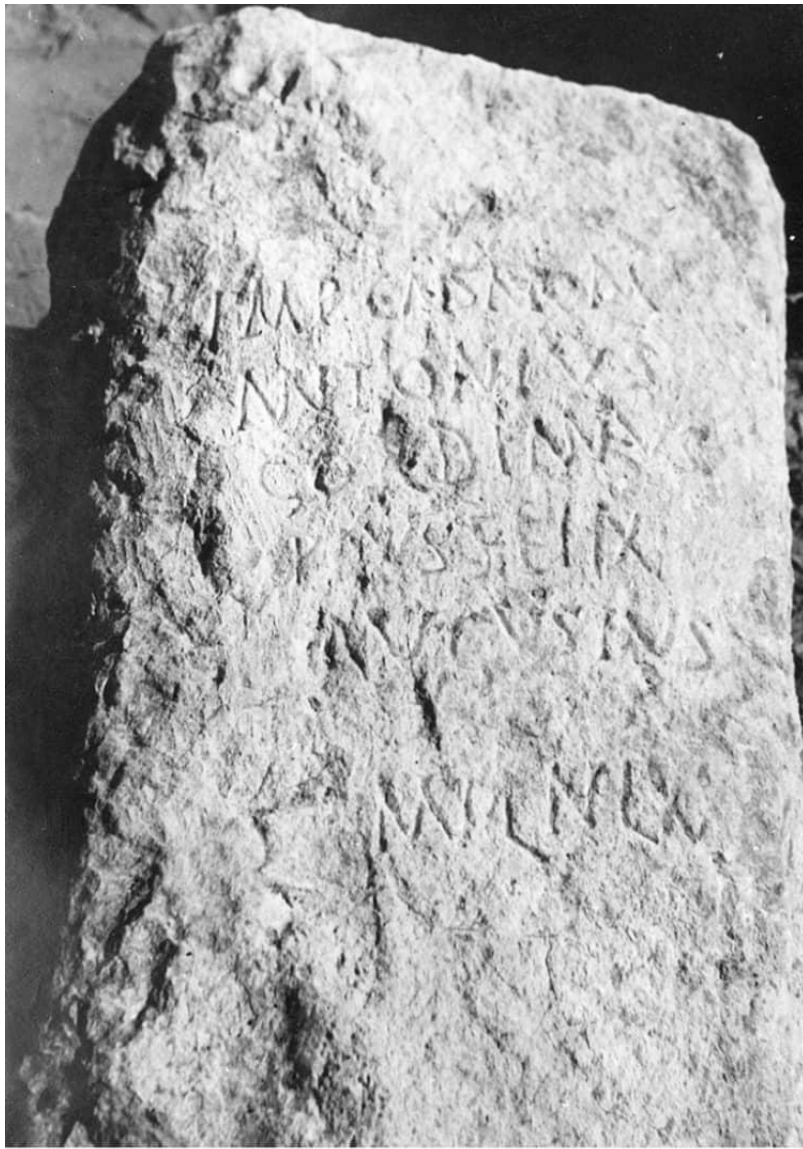 IMP CAES NO M
ANTONIVS
GORDIANVS
PIVS FELIX
AVGVSTVS
MIL N LX